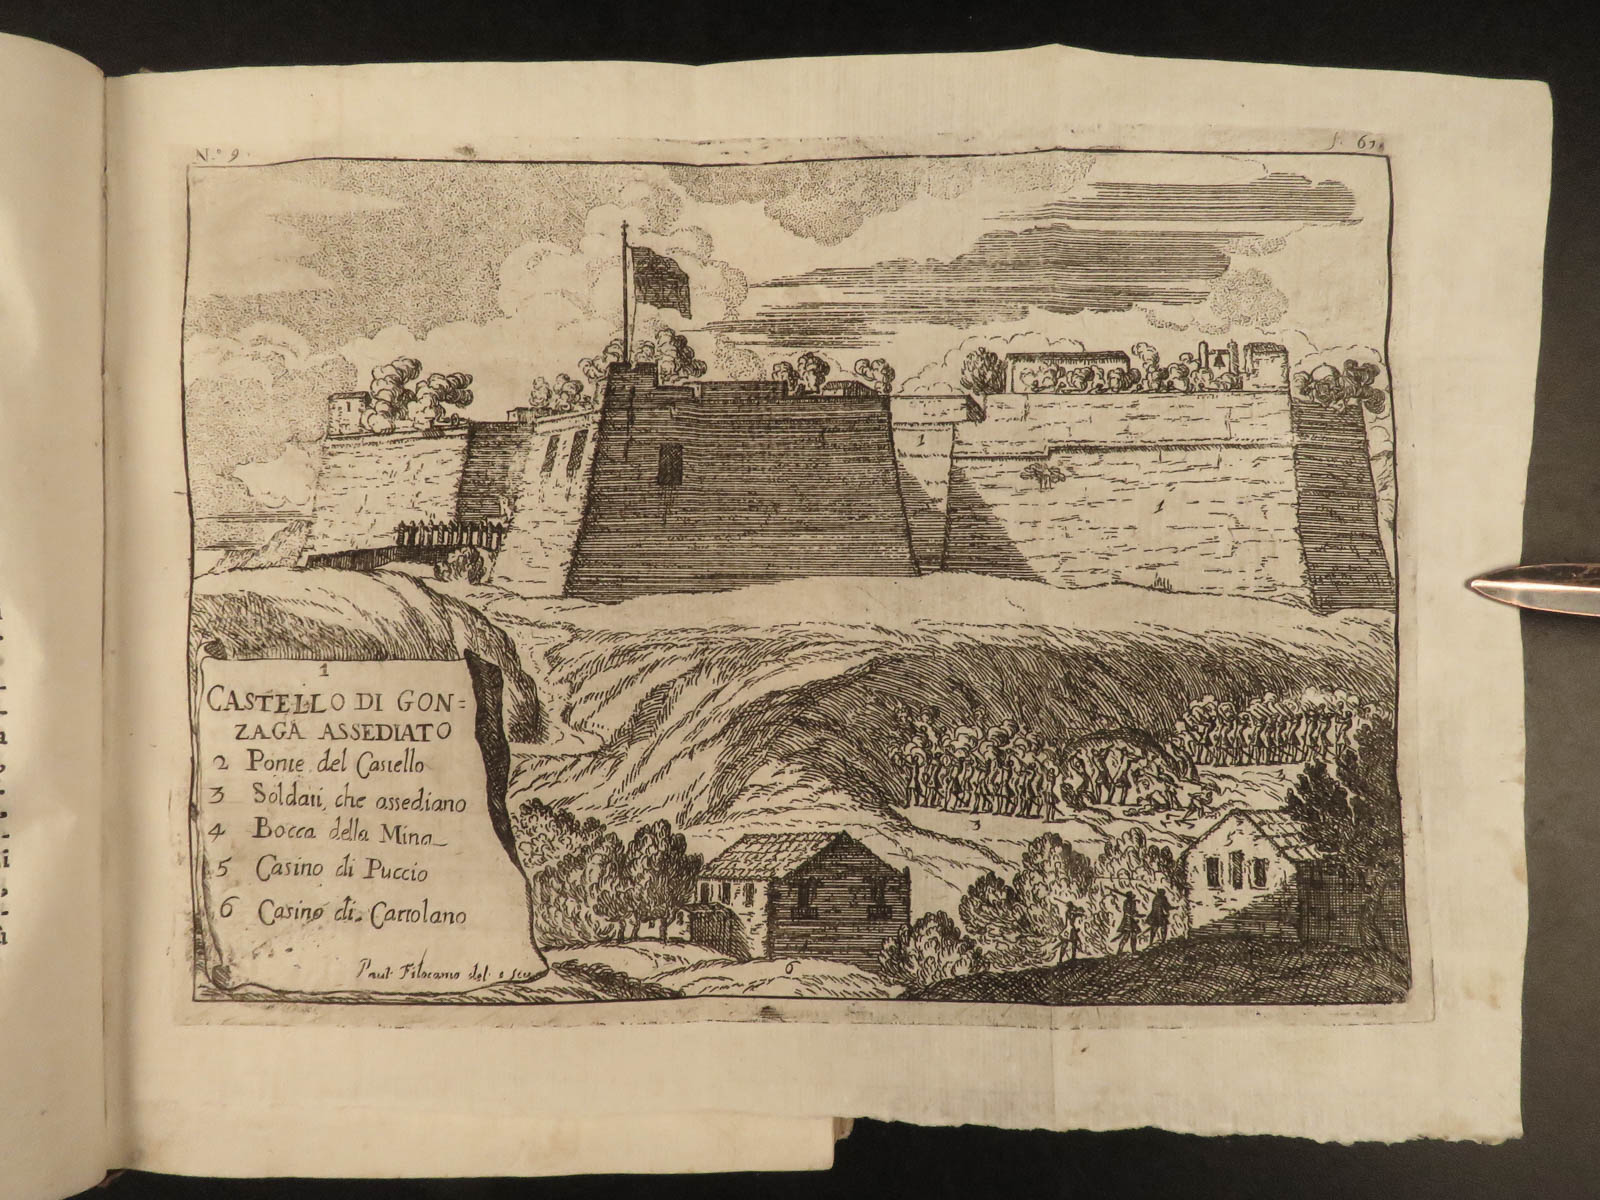 N.º 9
f. 67
1
CASTELLO DI GON=
ZAGA ASSEDIATO
2 Ponte del Castello
3 Soldati, che assediano
4 Bocca della Mina
5 Casino di Puccio
6 Casino di Cartolano
Paul. Filocamo del. e scu
1
1
1
3
3
5
6